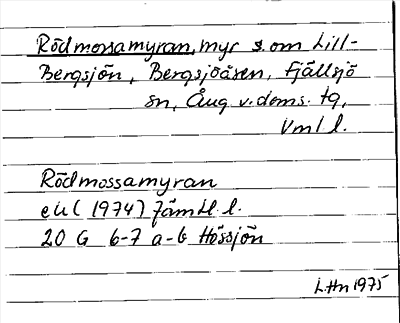 Rödmossamyran, myr s.om Lill-
Bergsjön, Bergsjöåsen, Fjällsjö
sn, Ång v. doms. tg,
Vml l.
Rödmossamyran
ek (1974) Jämtl. l.
20 G 6-7 a-b Hössjön
L.Hn 1975